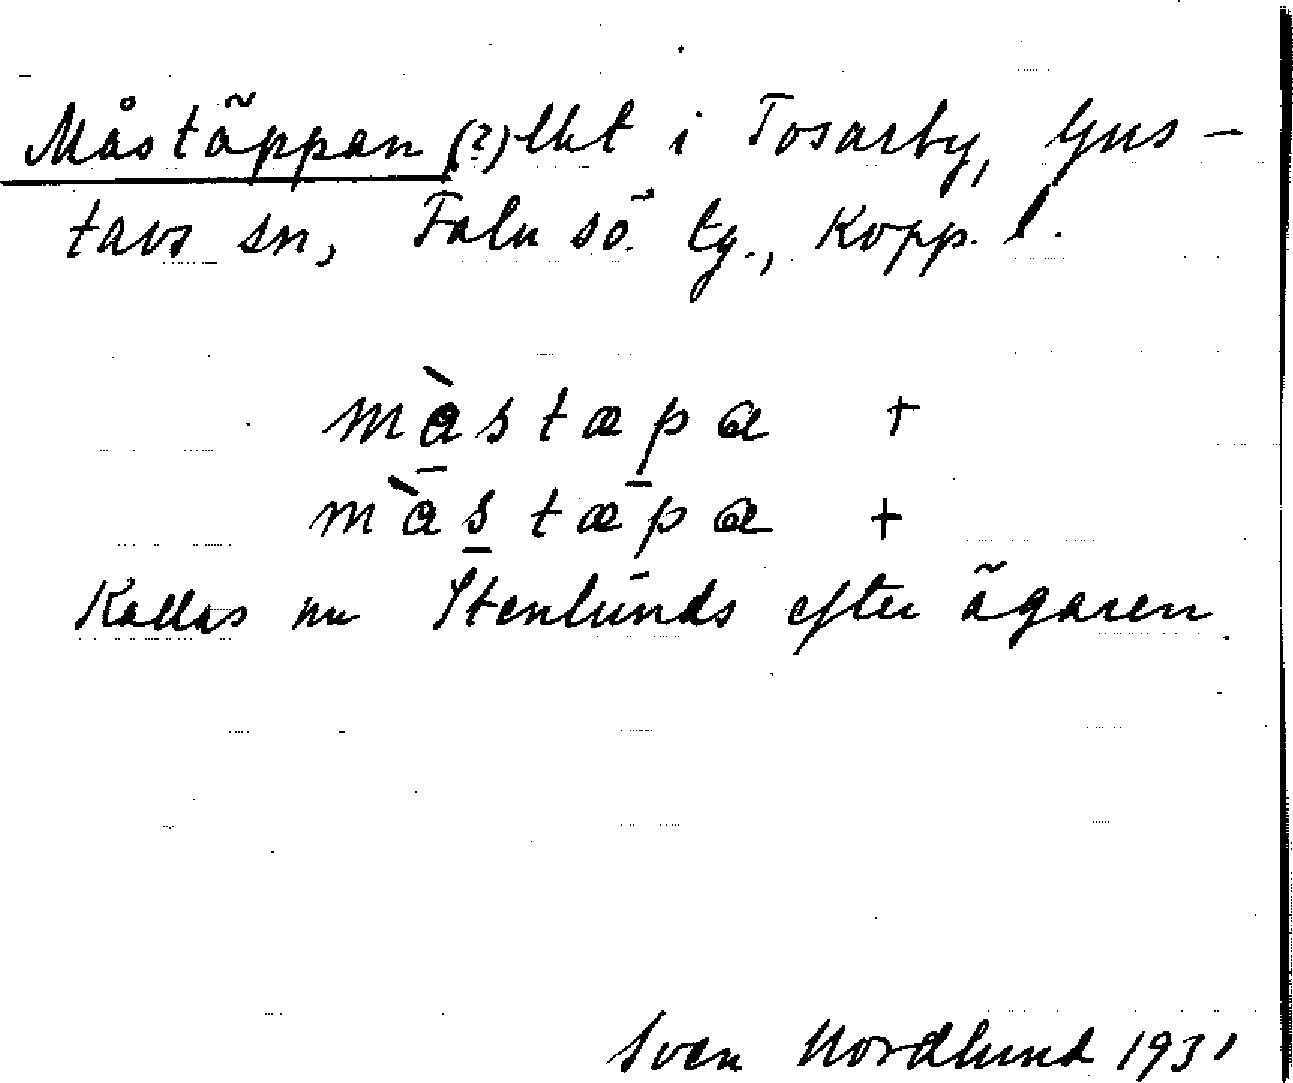 Måstäppan (?) lht i Tosarby, Gus-
tavs sn, Falu sö. tg., Kopp. l.
màstæpa +
màstæpa +
Kallas nu Stenlunds efter ägaren.
Sven Nordlund 1931